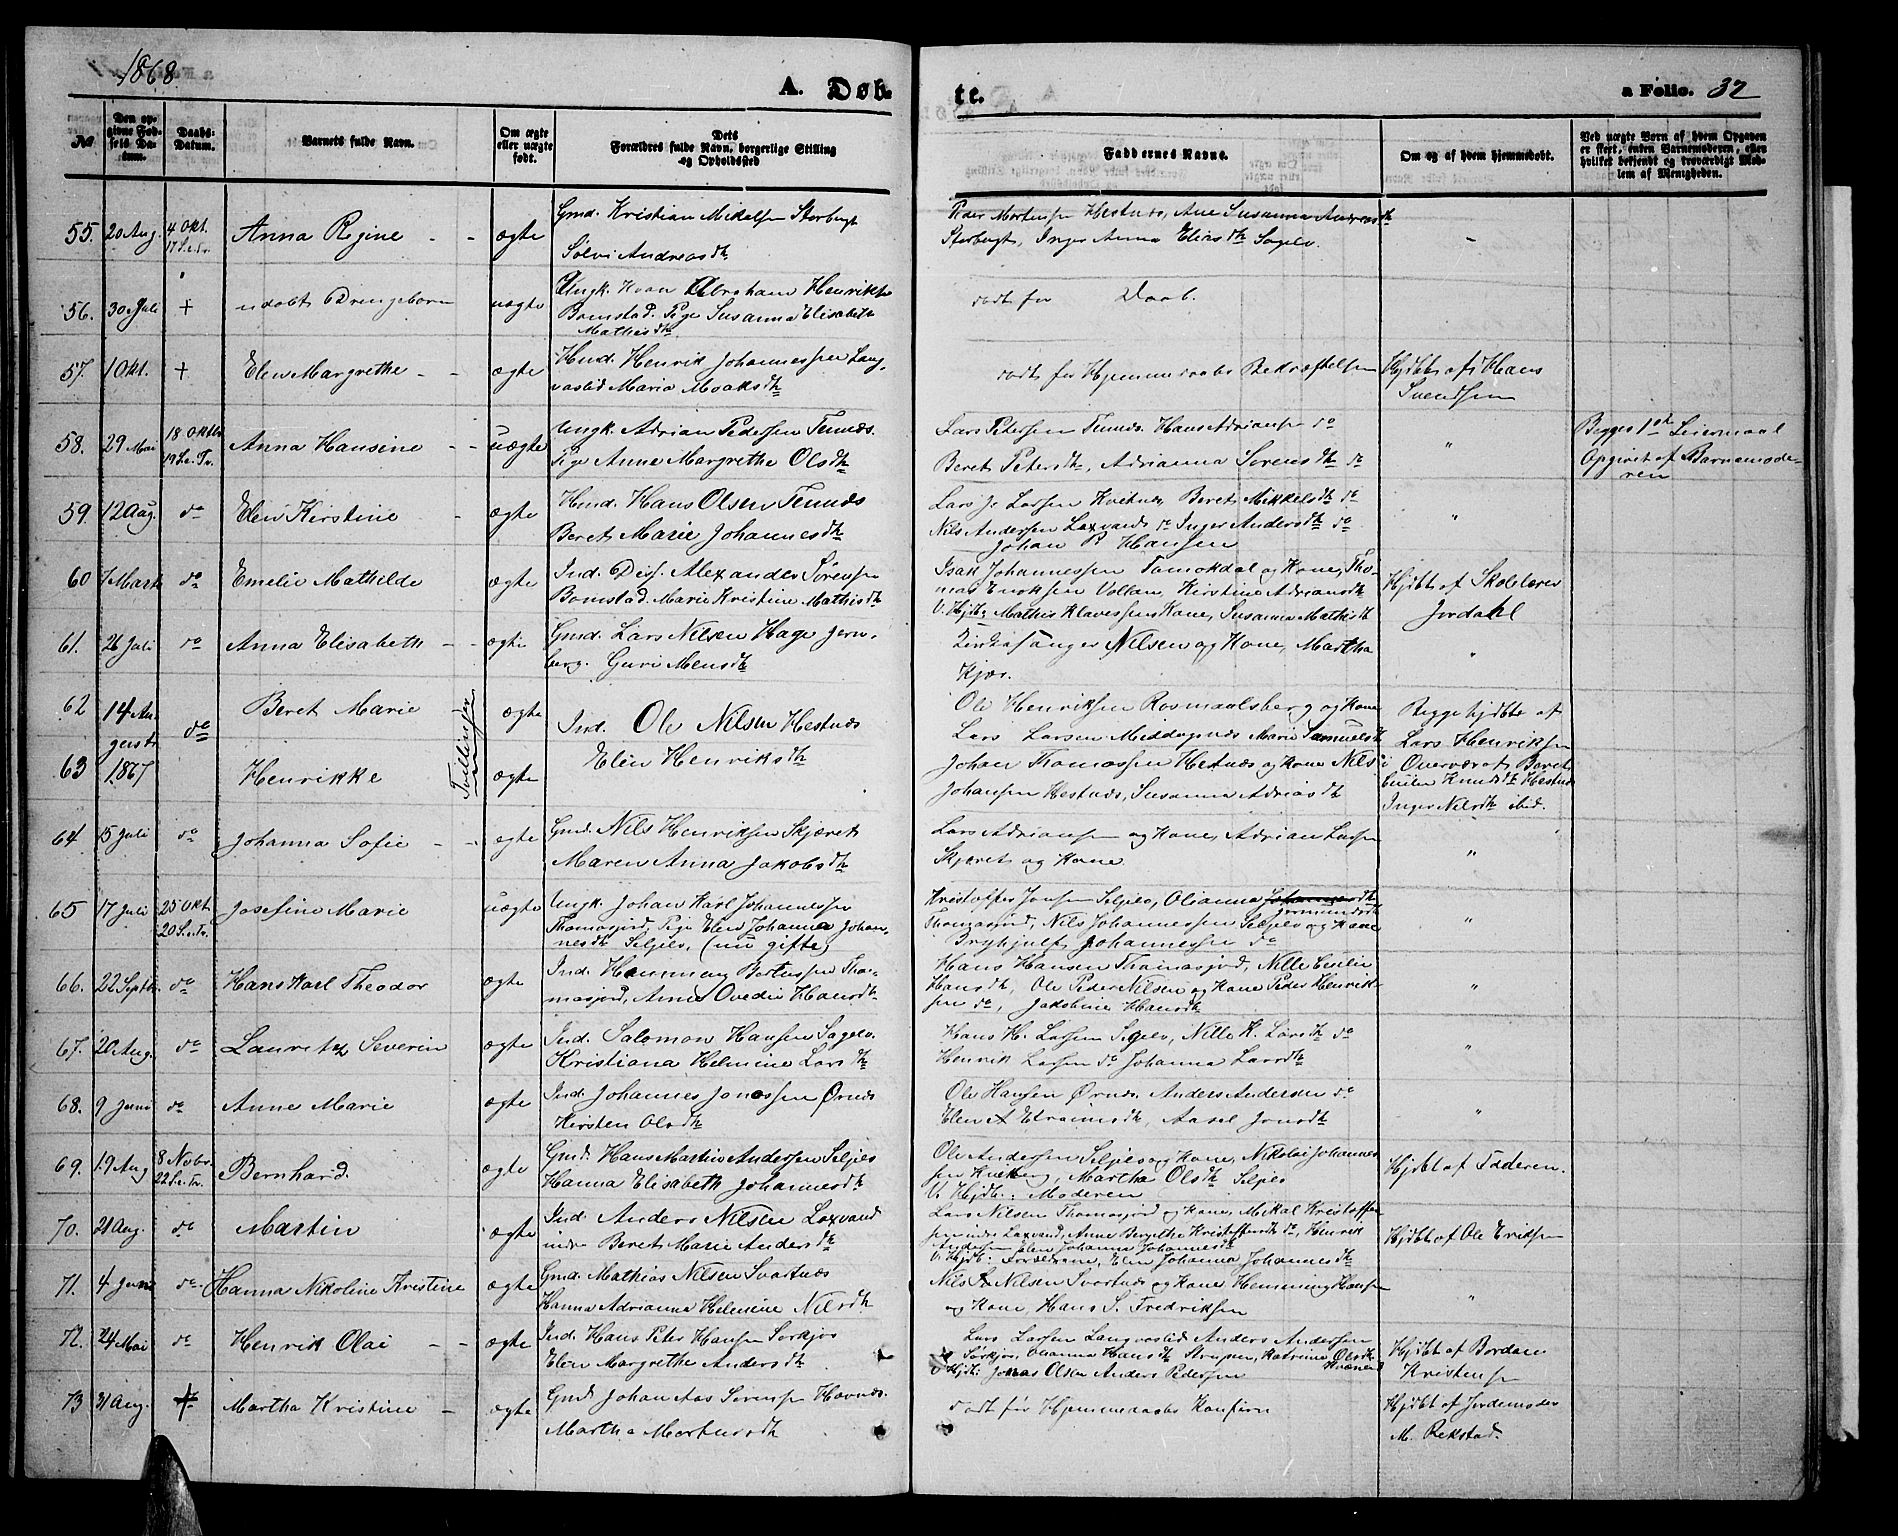 1868.
A. Døb-
te.
a Folio. 32
№
Den op-
givne Fød-
sels Da-
tum.
Daabs-
Datum.
Barnets fulde Navn.
Om ægte
eller uægte
født.
Dets
Forældres fulde Navn, borgerlige Stilling
og Opholdssted
Faddernes Navne.
Om og af hvem hjemmedøbt.
Ved uægte Børn af hvem Opgaven
er skeet, enten Barnemoderen, eller
hvilket bekjendt og troværdigt Med-
lem af Menigheden.
55. 20 Aug. 4 Okt. 17 S.e.Tr. Anna Regine - - ægte Gmd. Kristian Mikalsen Storbugt
Sølvi Andreasdtr
Peder Mortensen Hestnæs, Ane Susanna Andreasdtr
Storbugt, Inger Anna Eliasdtr Sagelv.
56. 30 Juli + udøbt Drengebarn uægte Ungk. Kvæn Abraham Henriksen
Bomstad. Pige Susanna Elisabeth
Mathisdtr
død før Daab.
57. 1 Okt. + Elen Margrethe - - ægte Hmd. Henrik Johannessen Lang-
vaslid Maria Moaksdtr
død før Hjemmedaabs Bekræftelsen
Hjdbt af Hans
Svendsen
58. 29 Mai 18 Oktbr 19 S.e.Tr. Anna Hansine - - uægte Ungk. Adrian Pedersen Tennæs.
Pige Anne Margrethe Olsdtr
Lars Petersen Tennæs. Hans Adriansen do
Beret Petersdtr, Adrianna Sørensdtr do
"
Begges 1ste Leiermaal
Opgivet af Barnemode-
ren
59. 12 Aug. do Elen Kirstine - ægte Hmd. Hans Olsen Tennæs
Beret Marie Johannesdtr
Lars J. Larsen Kvitnæs, Beret Mikkelsdtr do
Nils Andersen Laxvand, do Inger Andersdtr do
Johan P. Hansen
"
60 7 Marts do Emelie Mathilde ægte Ind. Diss. Alexander Sørensen
Bomstad. Marie Kristine Mathisdtr
Isak Johannessen Tamokdal og Kone, Tho-
mas Enoksen Vollan, Kirstine Adriansdtr
V. Hjdb: Mathis Klavessens Kone, Susanna Mathisdtr
Hjdbt af Skolelærer
Jordahl
61. 26 Juli do Anna Elisabeth - - ægte Gmd. Lars Nilsen Hage Jern-
berg. Guri Mensdtr
Kirkesanger Nilsen og Kone, Martha
Kjær.
"
62 14 Au-
gusti
1867 do Beret Marie ægte
Tvillinger
Ind. Ole Nilsen Hestnæs
Elen Henriksdtr
Ole Henriksen Rosmaalsberg og Kone
Lars Larsen Middagsnæs Marie Samuelsdtr
Begge hjdbte af
Lars Henriksen
63 Henrikke ægte
Johan Thomassen Hestnæs og Kone Nils
Johansen Hestnæs, Susanna Adriasdtr
Overværet Beret
Emilie Knudsdtr Hestnæs
Inger Nilsdtr ibid.
64 5 Juli do Johanna Sofie - - ægte Gmd. Nils Henriksen Skjæret
Maren Anna Jakobsdtr
Lars Adriansen og Kone, Adrian Larsen
Skjæret og Kone
"
65 17 Juli 25 Okt. 20 S.e.Tr. Josefine Marie uægte Ungk. Johan Karl Johannessen
Thomasjord, Pige Elen Johanna Johan-
nesdtr Seljelv, (nu gifte)
Kristoffer Jonsen Seljelv, Olianna Jormundsdtr
Thomasjord, Nils Johannessen Seljelv og Kone
Brynhjulf Johannessen do
"
66. 22 Septbr do Hans Karl Theodor ægte Ind. Henning Bertussen Tho-
masjord, Anne Ovedie Hansdtr
Hans Hansen Thomasjord, Nille Cecilie
Hansdtr, Ole Peder Nilsen og Kone Peder Henrik-
sen do, Jakobine Hansdtr
"
67. 20 Aug. do Lauretz Severin ægte Ind. Salomon Hansen Sagelv.
Kristiana Helmine Larsdtr
Hans H. Larsen Sagelv, Nille K. Larsdtr do
Henrik Larsen do Johanna Larsdtr
"
68. 9 Juni do Anne Marie ægte Ind. Johannes Jonassen Ørnæs
Kirsten Olsdtr
Ole Hansen Ørnæs. Anders Andersen do
Elen A Efraimsdtr, Aasel Jonsdtr
"
69. 19 Aug 8 Novbr. 22 S.e.Tr. Bernhard. ægte Gmd. Hans Martin Andersen Seljelv
Hanna Elisabeth Johannesdtr
Ole Andersen Seljelv og Kone, Nikolai Johannes-
sen Kvitberg, Martha Olsdtr Seljelv
V. Hjdb: Moderen
Hjdbt af Faderen.
70. 21 Aug. do Martin ægte Ind. Anders Nilsen Laxvand
indre Beret Marie Andersdtr
Lars Nilsen Thomasjord og Kone, Mikal Kristoffer-
sen indre Laxvand, Anne Bergithe Kristoffersdtr do, Henrik
Andersen Elen Johanna Johannesdtr
V. Hjdb: Forældrene, Elen Johanna Johannesdtr
Hjdbt af Ole Eriksen
71. 4 Juni do Hanna Nikoline Kristine ægte Gmd. Mathias Nilsen Svartnæs
Hanna Adrianna Helmine Nilsdtr
Nils Nilsen Svartnæs og Kone, Henning Hansen
og Kone, Hans S. Fredriksen
"
72. 24 Mai do Henrik Olai - - ægte Ind. Hans Peter Hansen Sørkjos
Elen Margrethe Andersdtr
Lars Larsen Langvaslid Anders Andersen
Sørkjos, Olianna Hansdtr Strupen, Katrine Olsdtr
V. Hjdb: Jonas Olsen Anders Pedersen
Hjdbt af Bordan
Kristensen
73 31 Aug. + Martha Kristine - ægte Gmd. Johan Aas Sørensen Havnæs.
Martha Mortensdtr
død før Hjemmedaabs Konfirm
Hjdbt af Jordemoder
M. Rekstad.